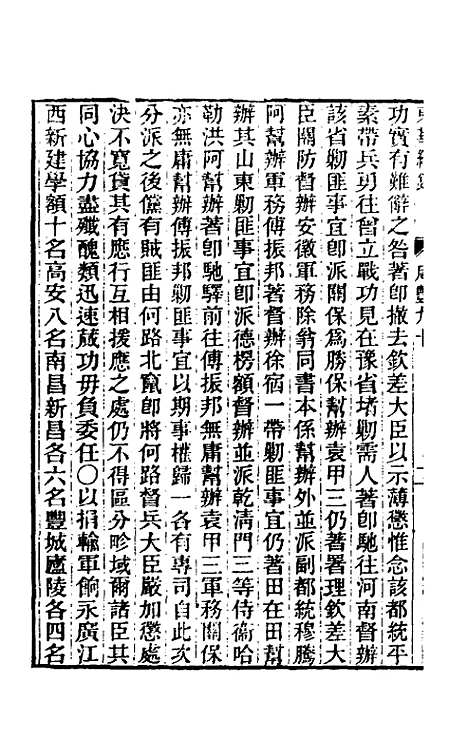 功實有難辭之咎著卽撤去欽差大臣以示薄懲惟念該都統平
素帶兵勇往曾立戰功見在豫省堵勦需人著卽馳往河南督辦
該省勦匪事宜卽派關保爲勝保幫辦袁甲三仍著署理欽差大
臣關防督辦安徽軍務除翁同書本係幫辦外並派副都統穆騰
阿幫辦軍務傅振邦著督辦徐宿一帶勦匪事宜仍著田在田幫
辦其山東勦匪事宜卽派德楞額督辦並派乾淸門三等侍衞哈
勒洪阿幫辦著卽馳驛前往傅振邦無庸幫辦袁甲三軍務關保
亦無庸幫辦傅振邦勦匪事宜以期事權歸一各有專司自此次
分派之後儻有賊匪由何路北竄卽將何路督兵大臣嚴加懲處
決不寬貸其有應行互相援應之處仍不得區分畛域爾諸臣其
同心協力盡殲醜類迅速蕆功毋負委任〇以捐輸軍餉永廣江
西新建學額十名高安八名南昌新昌各六名豐城廬陵各四名